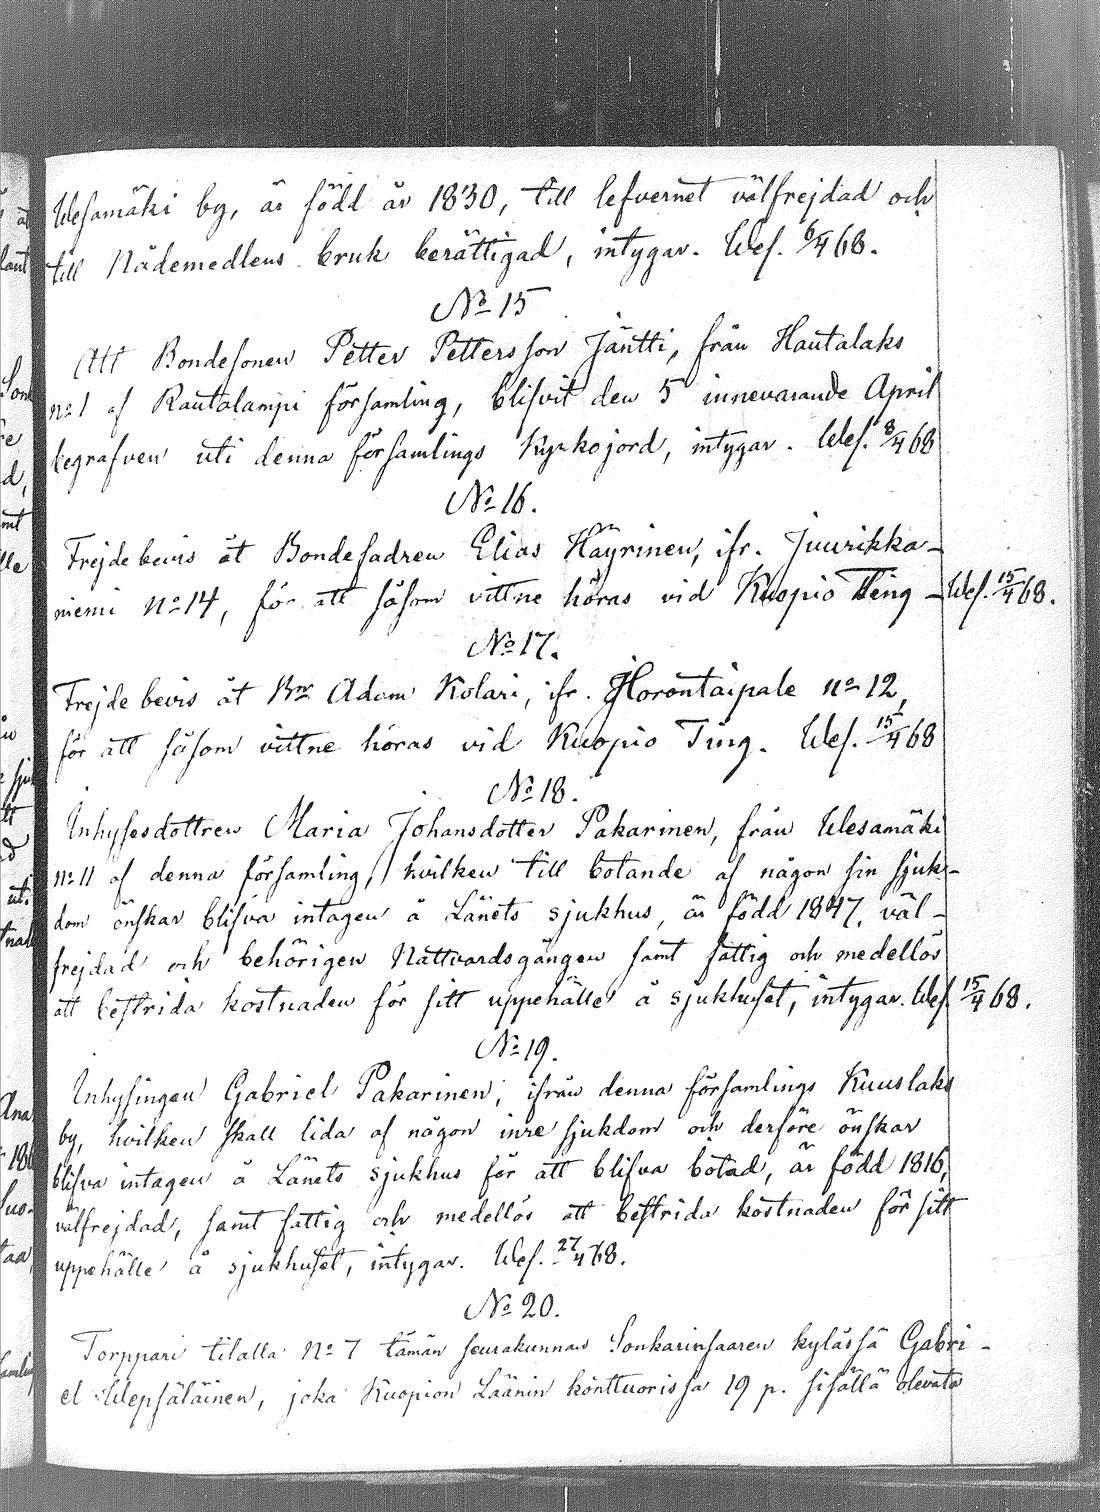 Wesamäki by, är född år 1830, till lefvernet välfrejdad och
till Nådemedlens bruk berättigad, intygar. Wes. 6/4 68.
No 15
Att Bondesonen Petter Pettersson Jäntti, från Hautalaks
no 1 af Rautalampi församling, blifvit den 5 innevarande April
begrafven uti denna församlings Kyrkojord, intygar. Wes. 8/4 68
No 16.
Frejdebevis åt Bondesadren Elias Häyrinen, ifr. Juurikka-
niemi no 14, för att såsom vittne höras vid Kuopio Ting - Wes. 15/4 68.
No 17.
Frejdebevis åt Bn Adam Kolari, ifr. Horontaipale no 12,
för att såsom vittne höras vid Kuopio Ting. Wes. 15/4 68
No 18.
Inhysesdottren Maria Johansdotter Pakarinen, från Wesamäki
no 11 af denna församling, hvilken till botande af någon sin sjuk-
dom önskar blifva intagen å Länets sjukhus, är född 1847, väl-
frejdad och behörigen Nattvardsgången samt fattig och medellös
att bestrida kostnaden för sitt uppehälle å sjukhuset, intygar. Wes. 15/4 68.
No 19.
Inhysingen Gabriel Pakarinen, ifrån denna församlings Kuuslaks
by, hvilken skall lida af någon inre sjukdom och derföre önskar
blifva intagen å Länets sjukhus för att blifva botad, är född 1816,
välfrejdad, samt fattig och medellös att bestrida kostnaden för sitt
uppehälle å sjukhuset, intygar. Wes. 27/4 68.
No 20.
Torppari tilalla No 7 tämän seurakunnan Sonkarinsaaren kylässä Gabri-
el Wepsäläinen, joka Kuopion Läänin könttuorissa 19 p. sisällä olevata